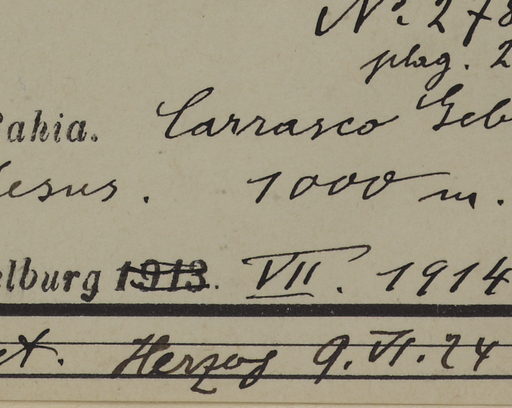 No. 278
plag. 2
Bahia. Carrasco Geb
Jesus. 1000 m.
elburg 1913. VII. 1914
et. Herzog 9. VI. 24